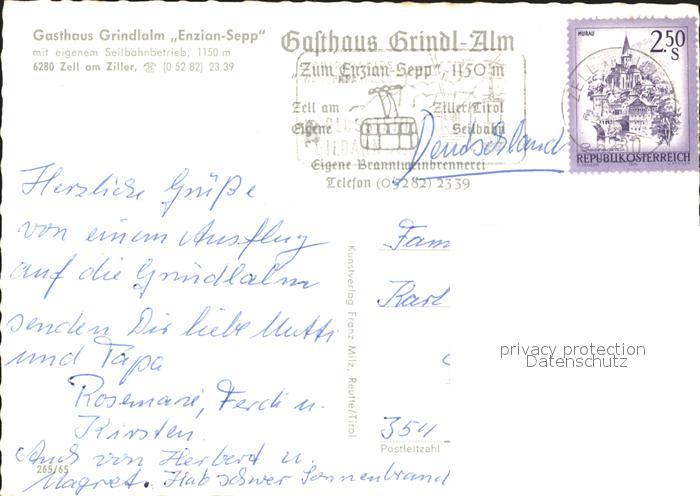 Gasthaus Grindlalm „Enzian-Sepp"
mit eigenem Seilbahnbetrieb, 1150 m
6280 Zell am Ziller, ☎ (0 52 82) 23 39
Gasthaus Grindl-Alm
„Zum Enzian-Sepp", 1150 m
Zell am Ziller/Tirol
Eigene Seilbahn
Eigene Branntweinbrennerei
Telefon (05282) 2339
MURAU
2.50 S
REPUBLIK ÖSTERREICH
Deutschland
Herzliche Grüße
von einem Ausflug
auf die Gründlalm
senden Dir liebe Mutti
und Papa
Rosemarie, Ferdi u.
Kirsten.
Auch von Herbert u.
Magret. Hab schwer Sonnenbrand
265/65
Kunstverlag Franz Milz, Reutte/Tirol
Fam
Karl
354
Postleitzahl
privacy protection
Datenschutz